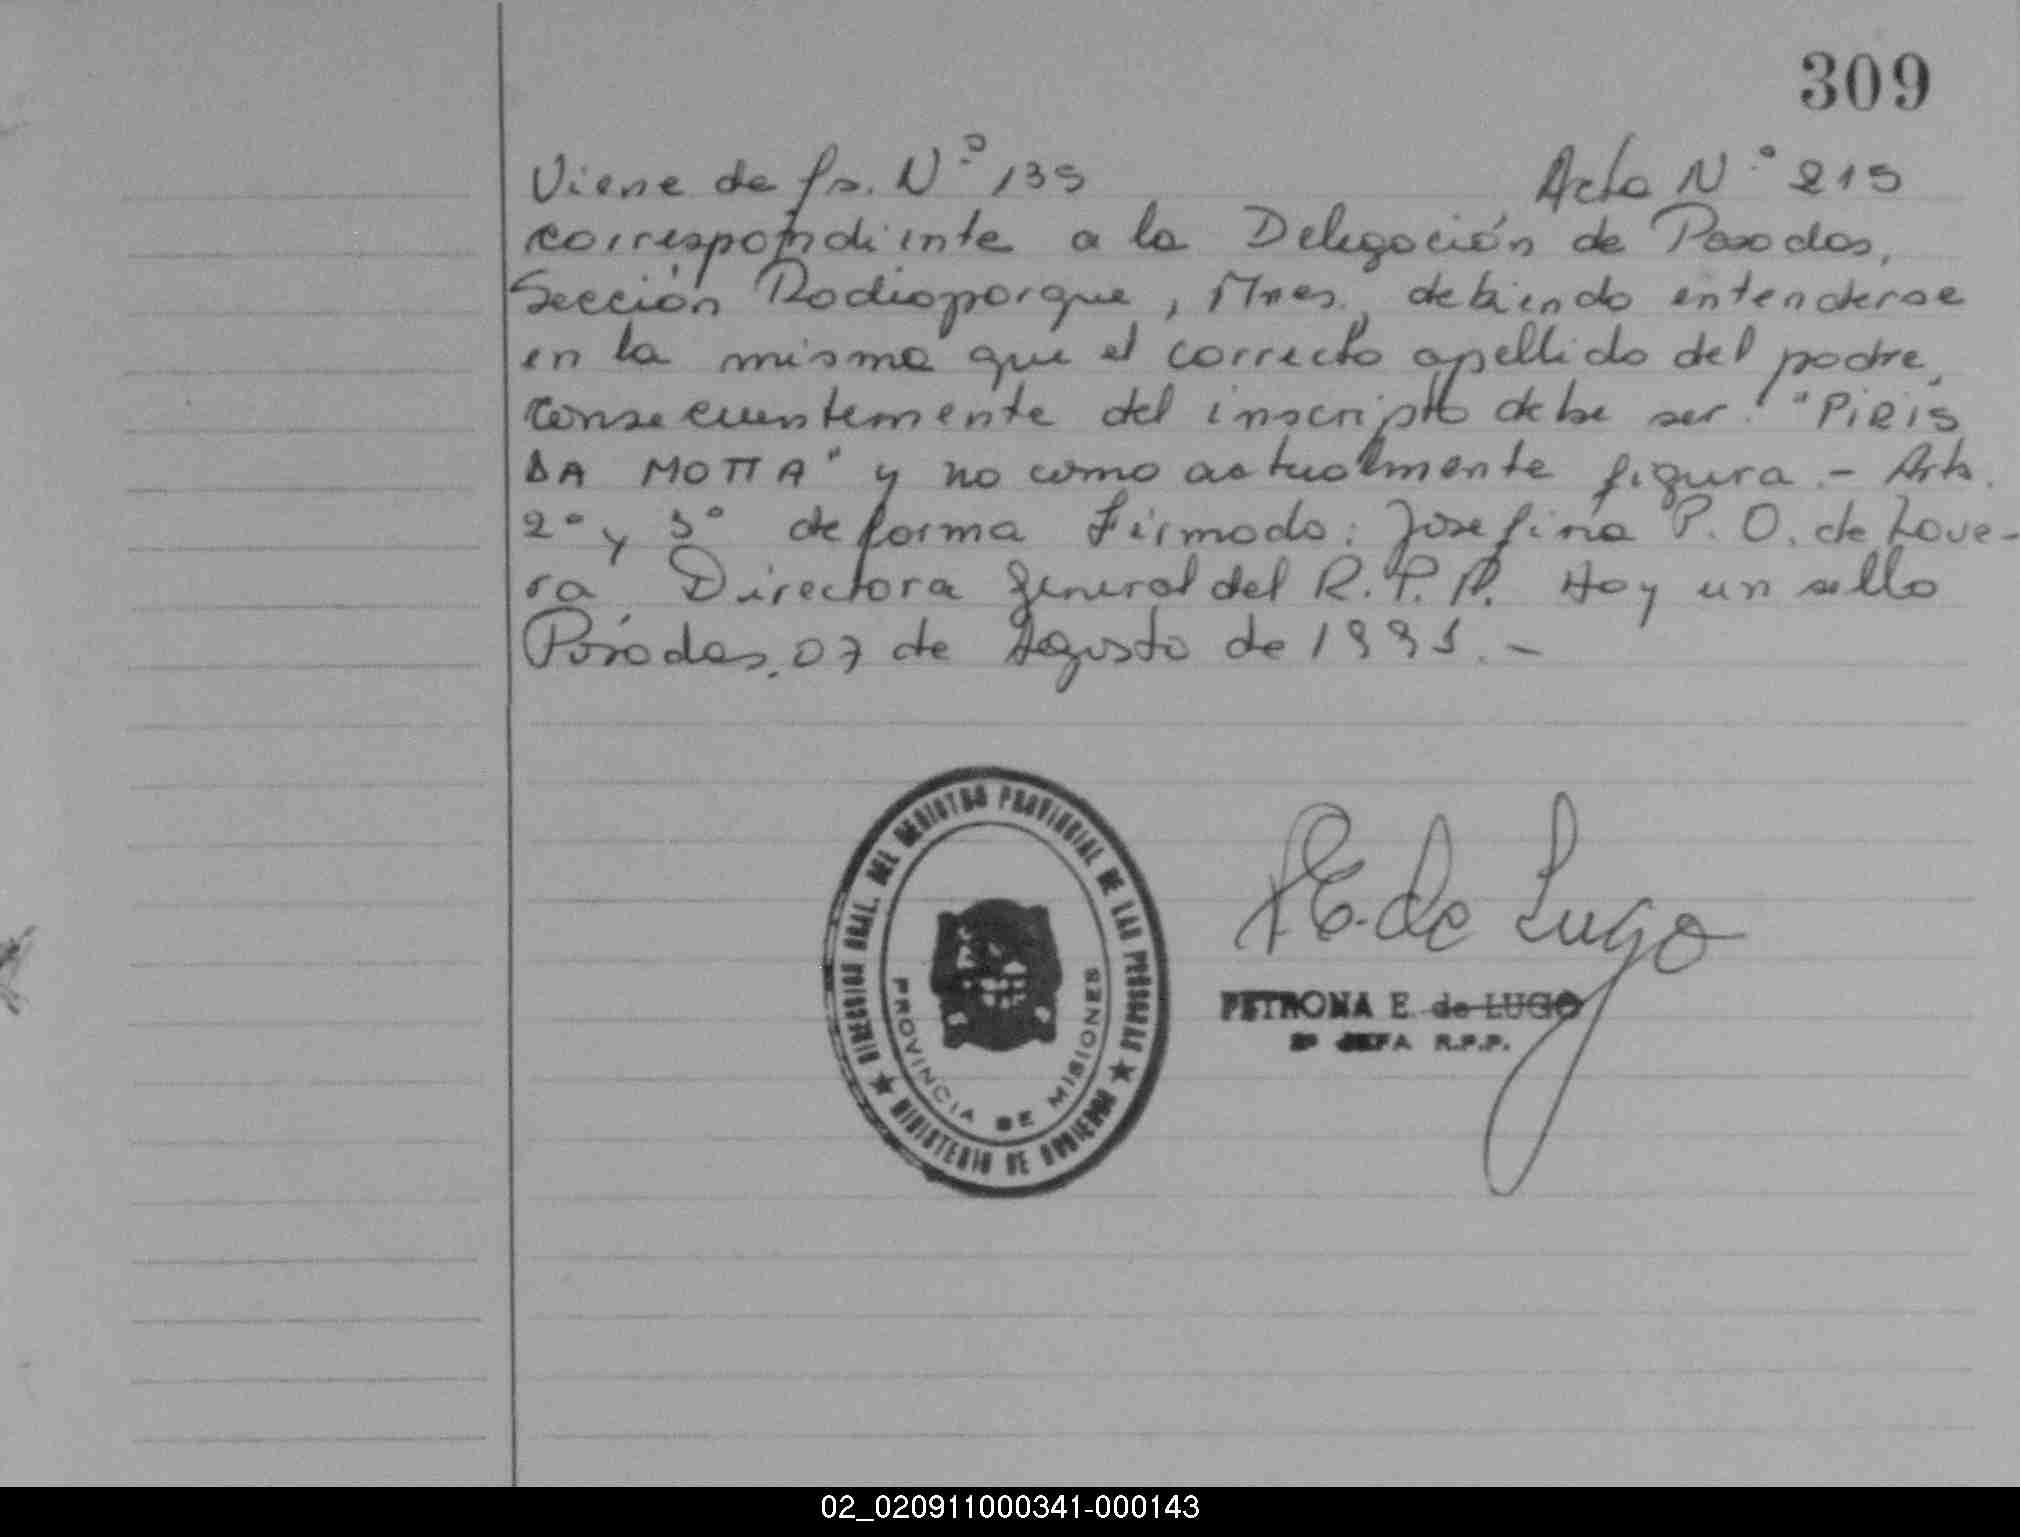 309
Viene de fs. Nº 135 Acta Nº 215
correspondiente a la Delegación de Posadas,
Sección Radioparque, Mnes., debiendo entenderse
en la misma que el correcto apellido del padre,
consecuentemente del inscripto debe ser: "PIRIS
DA MOTTA" y no como actualmente figura.- Arts.
2º y 3º de forma Firmado: Josefina P. O. de Love-
ra, Directora General del R. P. P. Hay un sello
Posadas, 07 de Agosto de 1991.-
DIRECCION GRAL. DEL REGISTRO PROVINCIAL DE LAS PERSONAS
PROVINCIA DE MISIONES
MINISTERIO DE GOBIERNO
P E. de Lugo
PETRONA E. de LUGO
2º JEFA R.P.P.
02_020911000341-000143